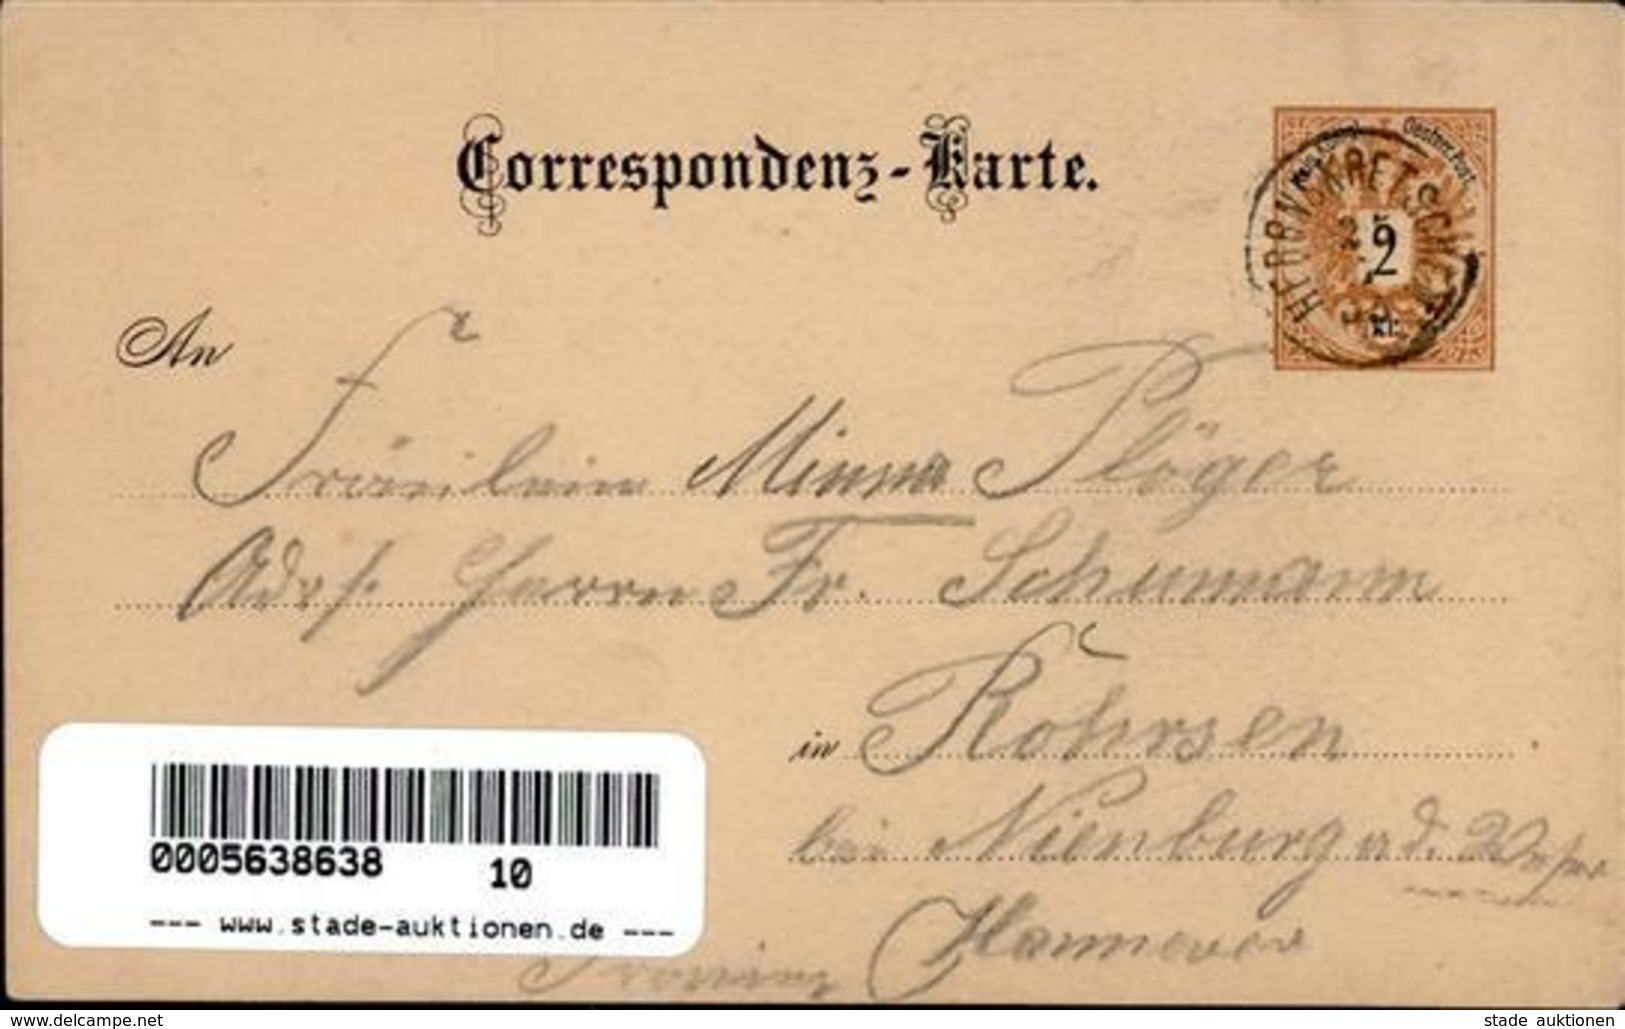 Correspondenz-Karte.
Oesterr. Post.
HERRNSKRETSCHEN
2
kr.
An
Fräulein Minna Plöger
Adrs: Herrn Fr. Schumann
in Röhrsen
bei Nienburg a d. Weser
Provinz Hannover
0005638638 10
--- www.stade-auktionen.de ---
www.delcampe.net
stade auktionen